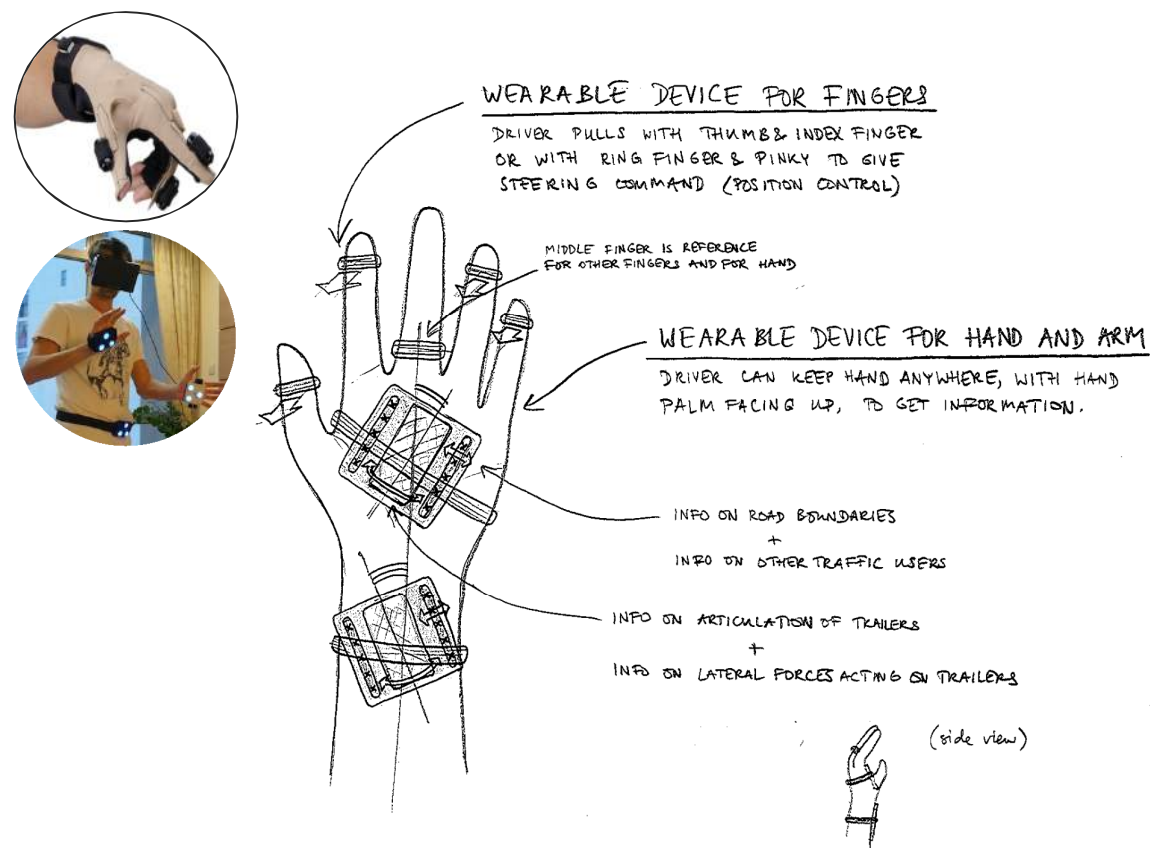 WEARABLE DEVICE FOR FINGERS
DRIVER PULLS WITH THUMB & INDEX FINGER
OR WITH RING FINGER & PINKY TO GIVE
STEERING COMMAND (POSITION CONTROL)
MIDDLE FINGER IS REFERENCE
FOR OTHER FINGERS AND FOR HAND
WEARABLE DEVICE FOR HAND AND ARM
DRIVER CAN KEEP HAND ANYWHERE, WITH HAND
PALM FACING UP, TO GET INFORMATION.
INFO ON ROAD BOUNDARIES
+
INFO ON OTHER TRAFFIC USERS
INFO ON ARTICULATION OF TRAILERS
+
INFO ON LATERAL FORCES ACTING ON TRAILERS
(side view)